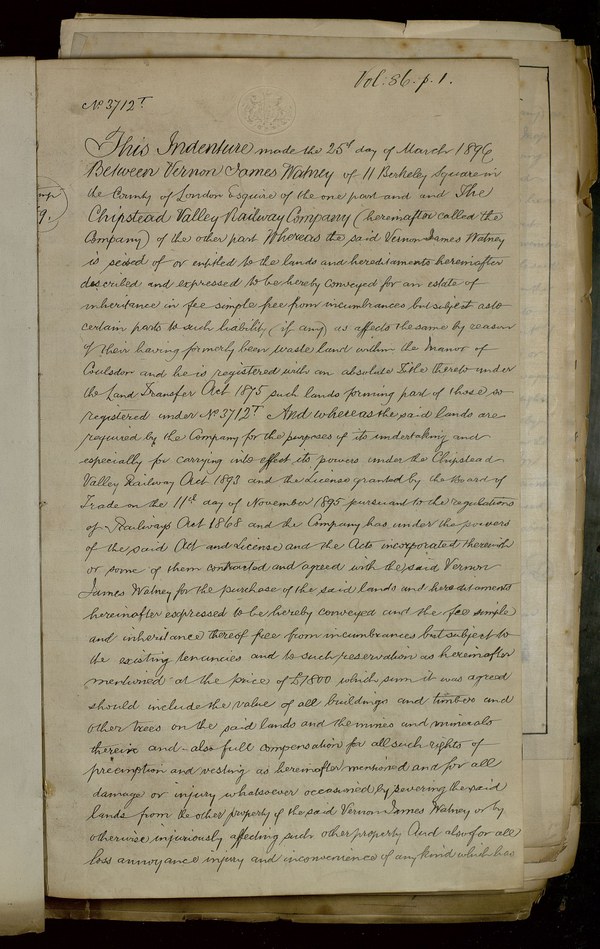 Vol. 86. p. 1.
No 3712T
This Indenture made the 25th day of March 1896
Between Vernon James Watney of 11 Berkeley Square in
the County of London Esquire of the one part and and The
Chipstead Valley Railway Company (hereinafter called the
Company) of the other part Whereas the said Vernon James Watney
is seised of or entitled to the lands and hereditaments hereinafter
described and expressed to be hereby conveyed for an estate of
inheritance in fee simple free from incumbrances but subject as to
certain parts to such liability (if any) as affects the same by reason
of their having formerly been waste land within the Manor of
Coulsdon and he is registered with an absolute Title thereto under
the Land Transfer Act 1875 such lands forming part of those so
registered under No 3712T And whereas the said lands are
required by the Company for the purposes of its undertaking and
especially for carrying into effect its powers under the Chipstead
Valley Railway Act 1893 and the License granted by the Board of
Trade on the 11th day of November 1895 pursuant to the regulations
of Railways Act 1868 and the Company has under the powers
of the said Act and License and the Acts incorporated therewith
or some of them contracted and agreed with the said Vernon
James Watney for the purchase of the said lands and hereditaments
hereinafter expressed to be hereby conveyed and the fee simple
and inheritance thereof free from incumbrances but subject to
the existing tenancies and to such reservation as hereinafter
mentioned at the price of £7800 which sum it was agreed
should include the value of all buildings and timber and
other trees on the said lands and the mines and minerals
therein and also full compensation for all such rights of
preemption and vesting as hereinafter mentioned and for all
damage or injury whatsoever occasioned by severing the said
lands from the other property of the said Vernon James Watney or by
otherwise injuriously affecting such other property And also for all
loss annoyance injury and inconvenience of any kind which has